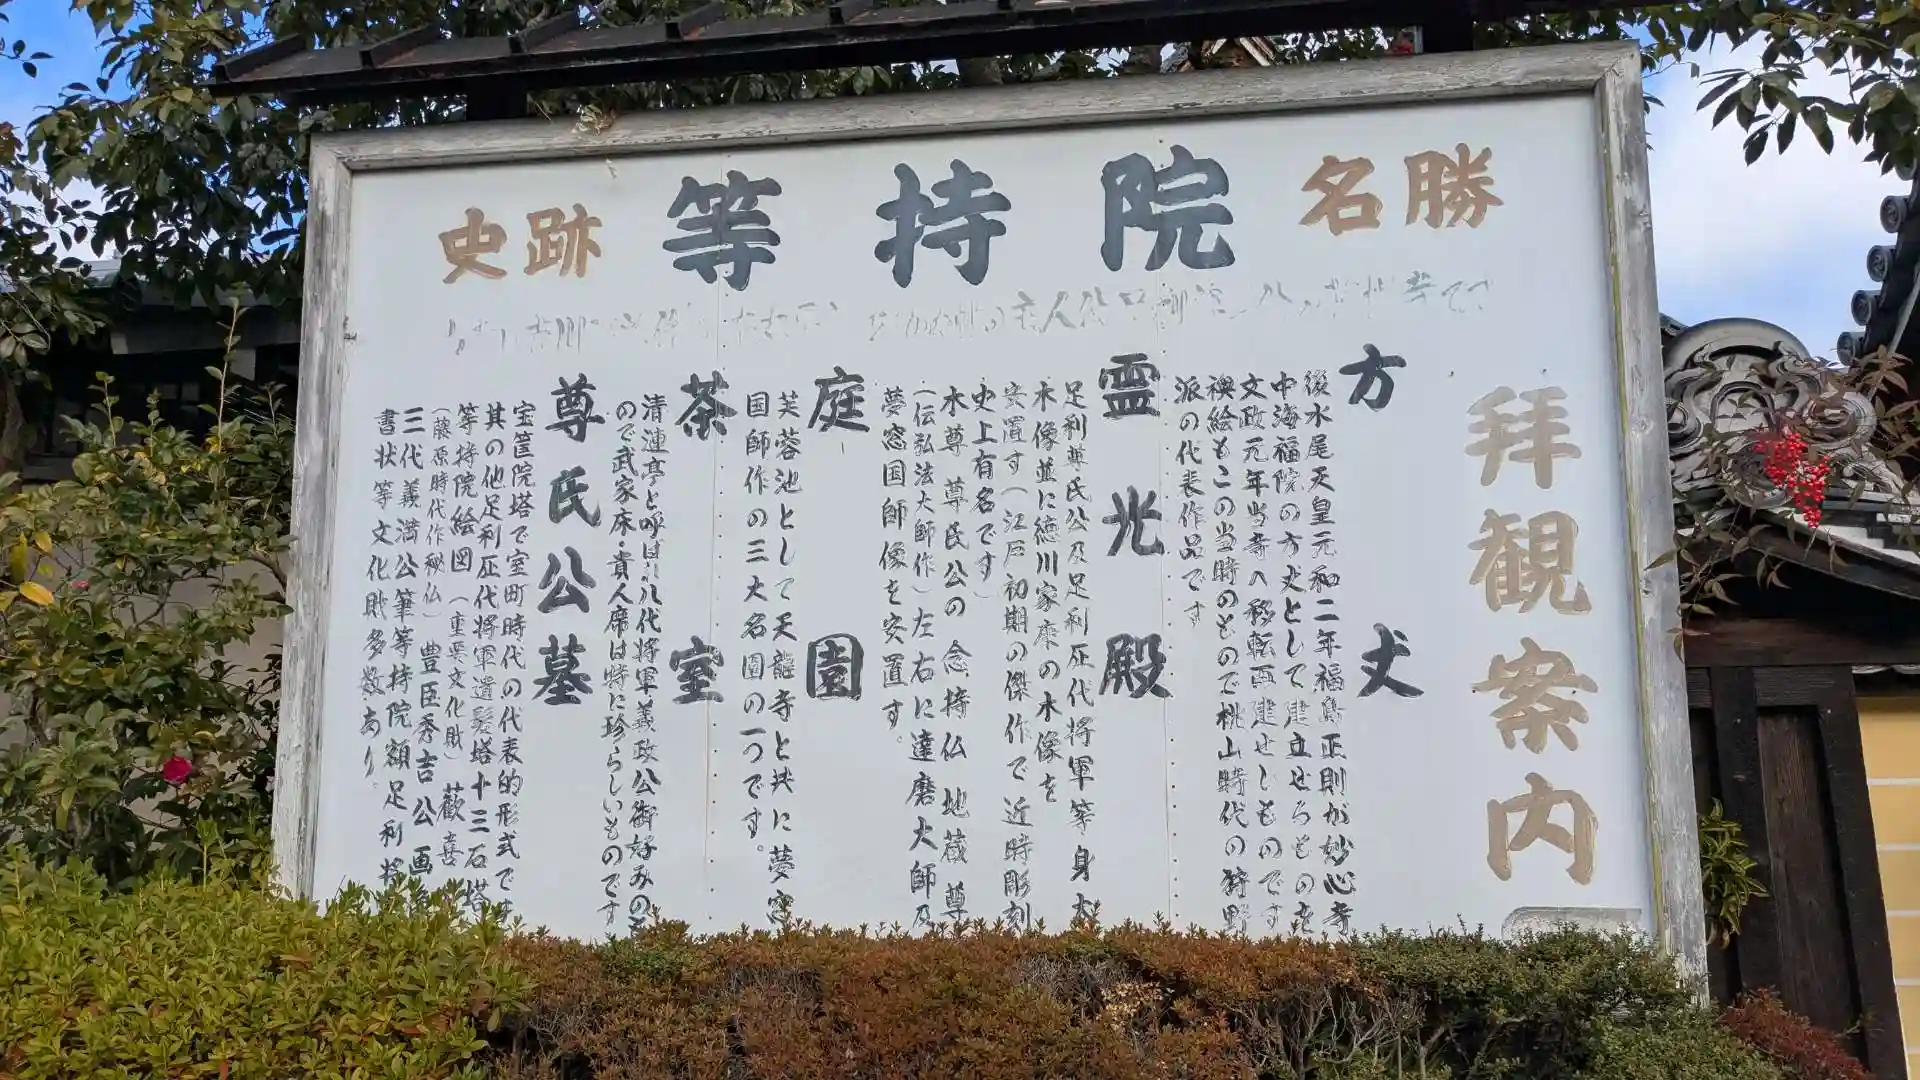 史跡 等持院 名勝
拝観案内
方丈
後水尾天皇元和二年福島正則が妙心寺
中海福院の方丈として建立せらものを
文政元年当寺へ移転再建せしものです
襖絵もこの当時のもので桃山時代の狩野
派の代表作品です
霊光殿
足利尊氏公及足利歴代将軍等身大
木像並に徳川家康の木像を
安置す(江戸初期の傑作で近時彫刻
史上有名です)
本尊 尊氏公の 念持仏 地蔵 尊
(伝弘法大師作)左右に達磨大師及
夢窓国師像を安置す。
庭園
芙蓉池として天龍寺と共に夢窓
国師作の三大名園の一つです。
茶室
清漣亭と呼ばれ八代将軍義政公御好みの
ので武家床・貴人席は特に珍らしいものです
尊氏公墓
宝筐院塔で室町時代の代表的形式です
其の他足利歴代将軍遺髪塔十三石塔
等持院絵図(重要文化財) 歓喜
(藤原時代作秘仏) 豊臣秀吉公画
三代義満公筆等持院額足利将
書状等文化財多数あり。